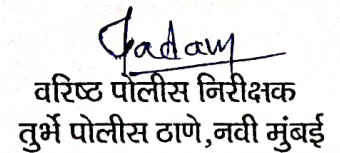 Jadam
वरिष्ठ पोलीस निरीक्षक
तुर्भे पोलीस ठाणे,नवी मुंबई